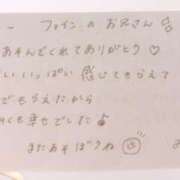 ー ファインのお兄さん
あそんでくれてありがとう♡
いいっぱい 感じてもらえて
でもらえたから
くも幸せでした♪
またあそぼうね